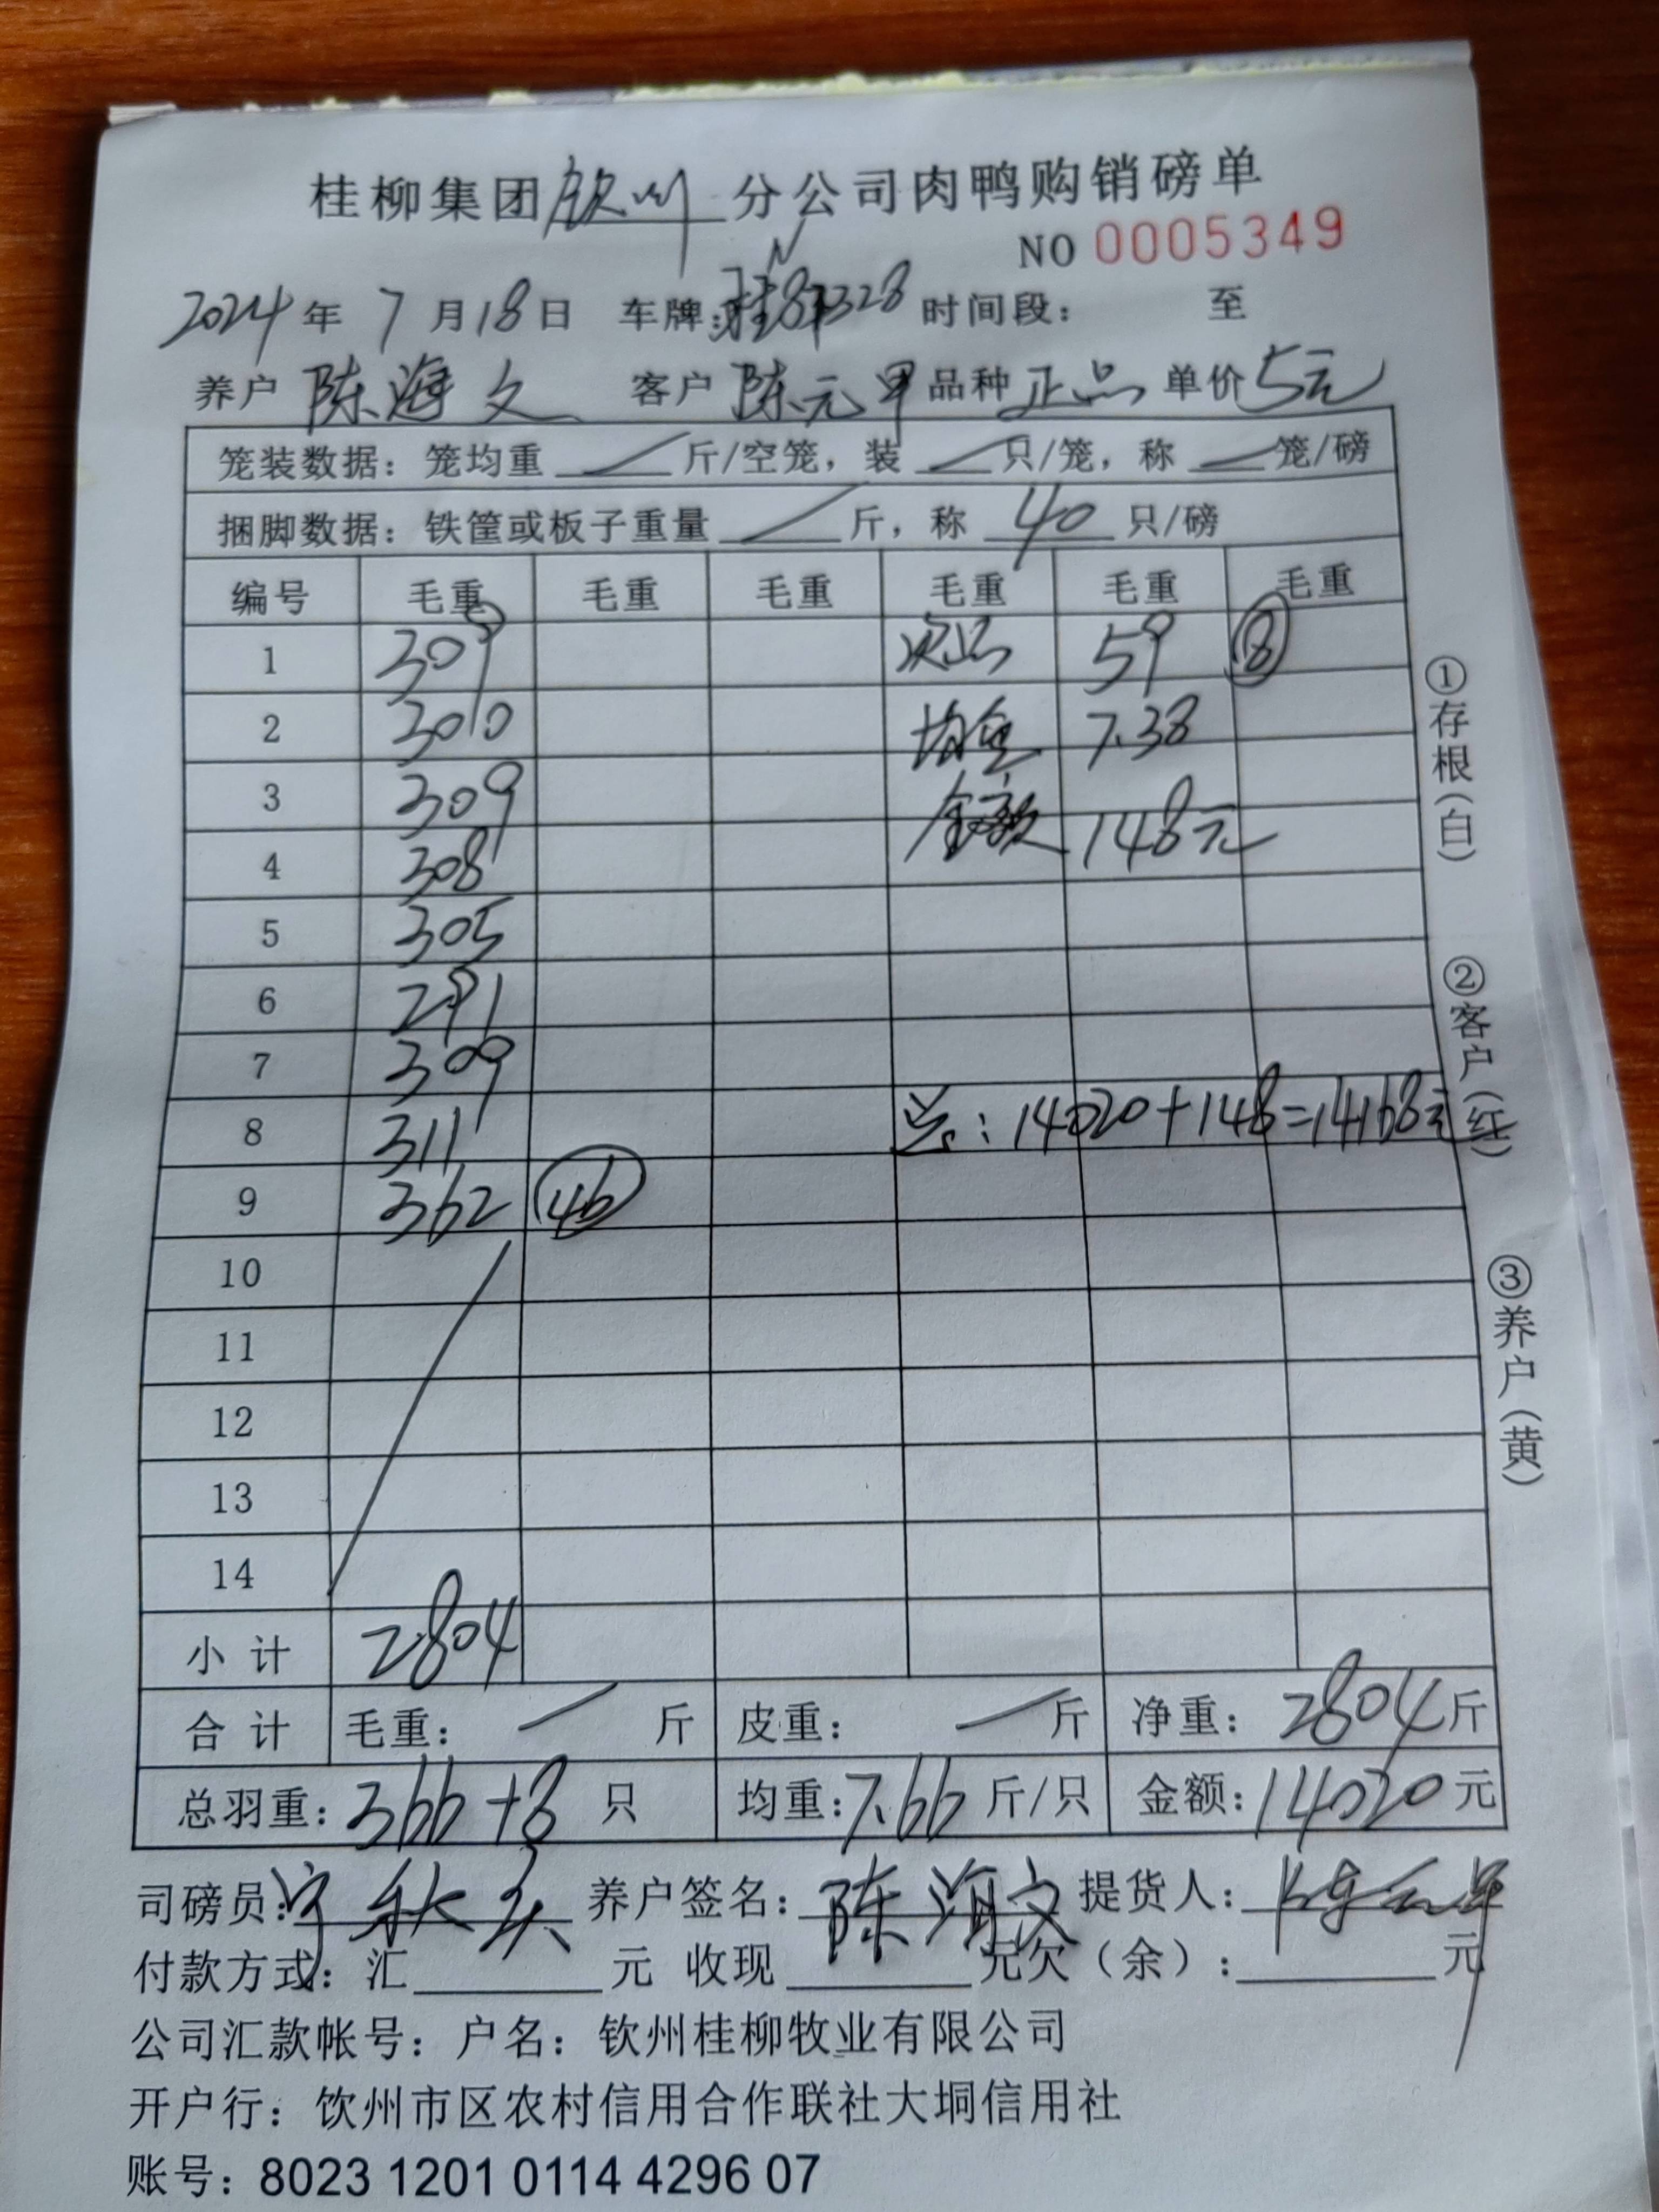 桂柳集团钦州分公司肉鸭购销磅单
NO 0005349
2024年 7月18日 车牌: 时间段: 至
养户 陈海文 客户 陈元甲 品种 正品 单价 5元
笼装数据: 笼均重 / 斤/空笼, 装 / 只/笼, 称 / 笼/磅
捆脚数据: 铁筐或板子重量 / 斤, 称 40 只/磅
编号 毛重 毛重 毛重 毛重 毛重 毛重
1 309 次品 59 ⑧
2 300 均重 7.38
3 309 金额 148元
4 308
5 305
6 291
7 309
8 311 共: 14020+148=14168元
9 362 46
10
11
12
13
14
小计 2804
合计 毛重: / 斤 皮重: / 斤 净重: 2804斤
总羽重: 366+8 只 均重: 7.66 斤/只 金额: 14020元
司磅员: 养户签名: 陈海文 提货人: 陈元甲
付款方式: 汇 元 收现 元欠(余): 元
公司汇款帐号: 户名: 钦州桂柳牧业有限公司
开户行: 饮州市区农村信用合作联社大垌信用社
账号: 8023 1201 0114 4296 07
①存根(白)
②客户(红)
③养户(黄)